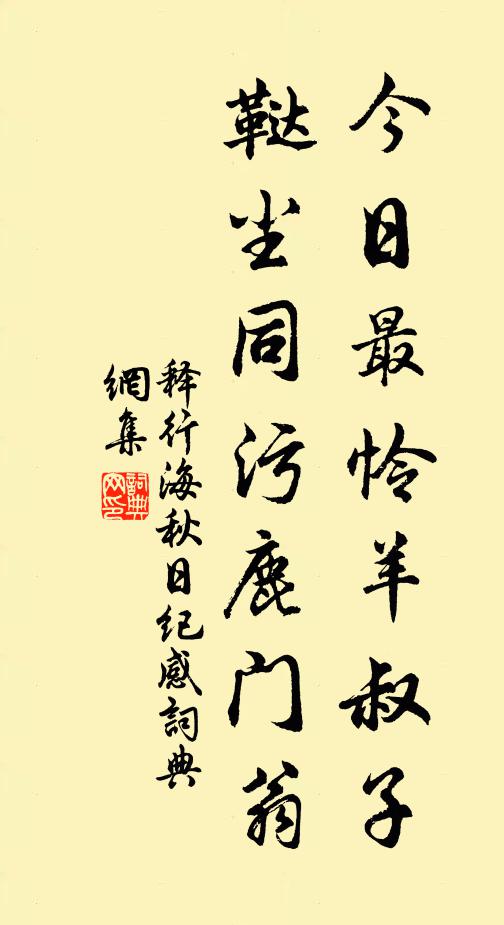 今日最怜羊叔子
鞑尘同污鹿门翁
释行海秋日纪感詞典
網集
詞典
网印